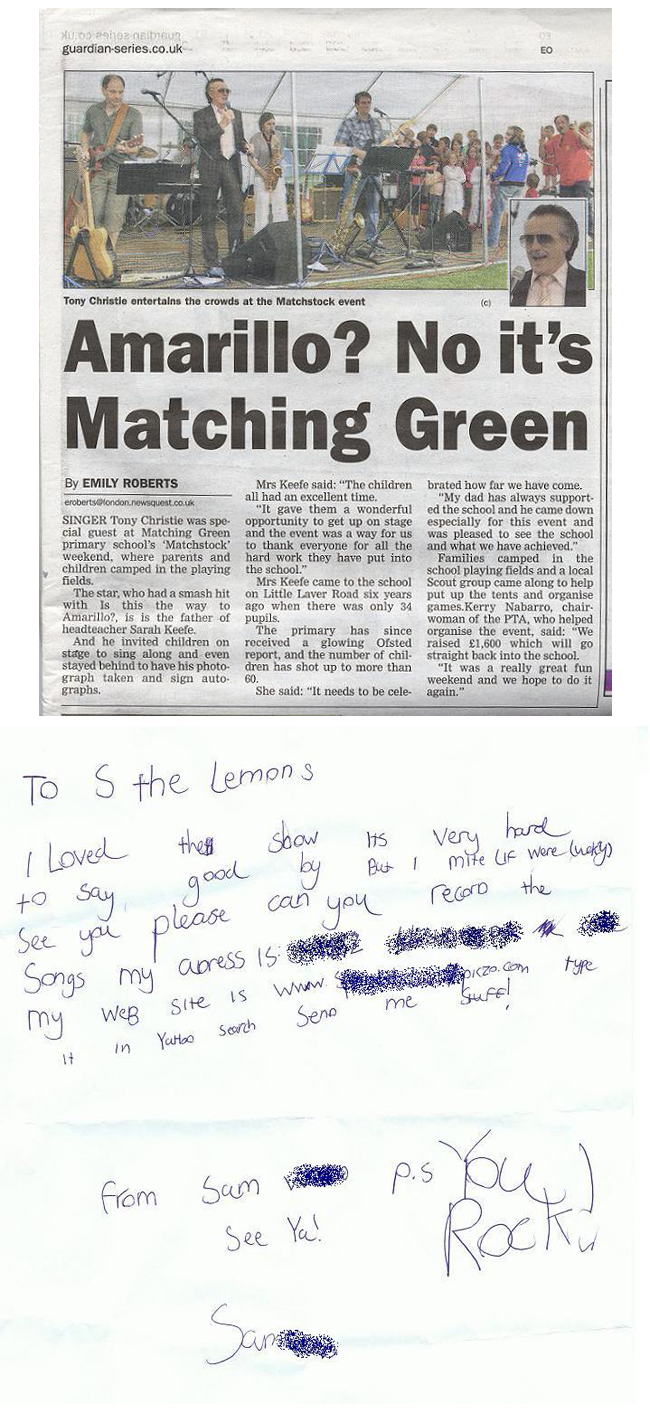 guardian-series.co.uk
EO
Tony Christie entertains the crowds at the Matchstock event
(c)
Amarillo? No it's
Matching Green
By EMILY ROBERTS
eroberts@london.newsquest.co.uk
SINGER Tony Christie was spe-
cial guest at Matching Green
primary school's 'Matchstock'
weekend, where parents and
children camped in the playing
fields.
The star, who had a smash hit
with Is this the way to
Amarillo?, is is the father of
headteacher Sarah Keefe.
And he invited children on
stage to sing along and even
stayed behind to have his photo-
graph taken and sign auto-
graphs.
Mrs Keefe said: "The children
all had an excellent time.
"It gave them a wonderful
opportunity to get up on stage
and the event was a way for us
to thank everyone for all the
hard work they have put into
the school."
Mrs Keefe came to the school
on Little Laver Road six years
ago when there was only 34
pupils.
The primary has since
received a glowing Ofsted
report, and the number of chil-
dren has shot up to more than
60.
She said: "It needs to be cele-
brated how far we have come.
"My dad has always support-
ed the school and he came down
especially for this event and
was pleased to see the school
and what we have achieved."
Families camped in the
school playing fields and a local
Scout group came along to help
put up the tents and organise
games.Kerry Nabarro, chair-
woman of the PTA, who helped
organise the event, said: "We
raised £1,600 which will go
straight back into the school.
"It was a really great fun
weekend and we hope to do it
again."
To S the Lemons
I Loved the show Its very hard
to say good by But I mite (if were lucky)
See you please can you record the
Songs my adress Is:
my web site is www. piczo.com type
it in Yahoo search Send me Stuff!
from Sam p.s You
See Ya! Rock!
Sam